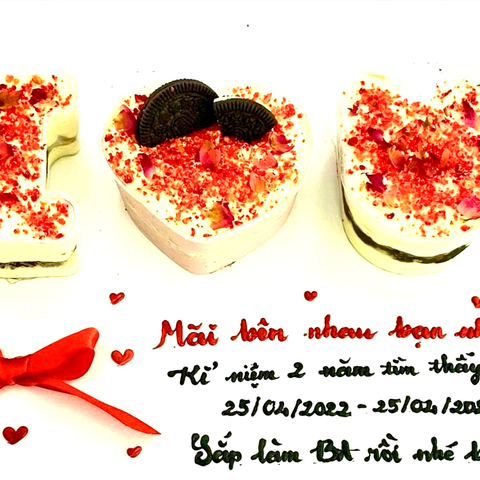 Mãi bên nhau bạn nh
Kỉ niệm 2 năm tìm thấy
25/04/2022 - 25/04/202
Sắp làm BA rồi nhé b